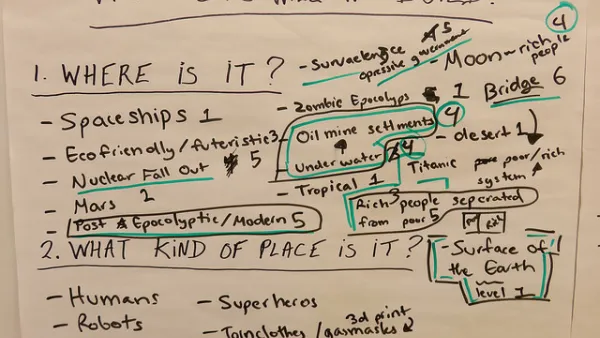 4
- Survaelence 5
opressive government
- Moon - rich
people
1. WHERE IS IT?
- Zombie Epocolyps 1
Bridge 6
- Spaceships 1
Oil mine setlments 4
- desert 1
- Ecofriendly/futeristic 3
Underwater 4
Titanic
poor/rich
system
- Nuclear Fall Out 5
- Tropical 1
- Mars 2
Rich people seperated
from poor 5
3
- Post Epocolyptic/Modern 5
2. WHAT KIND OF PLACE IS IT?
- Surface of
the Earth
level 1
- Humans
- Superheros
- Robots
3d print
- Tornclothes/gasmasks 2